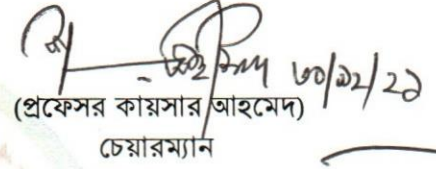 ৩০/১২/২১
(প্রফেসর কায়সার আহমেদ)
চেয়ারম্যান